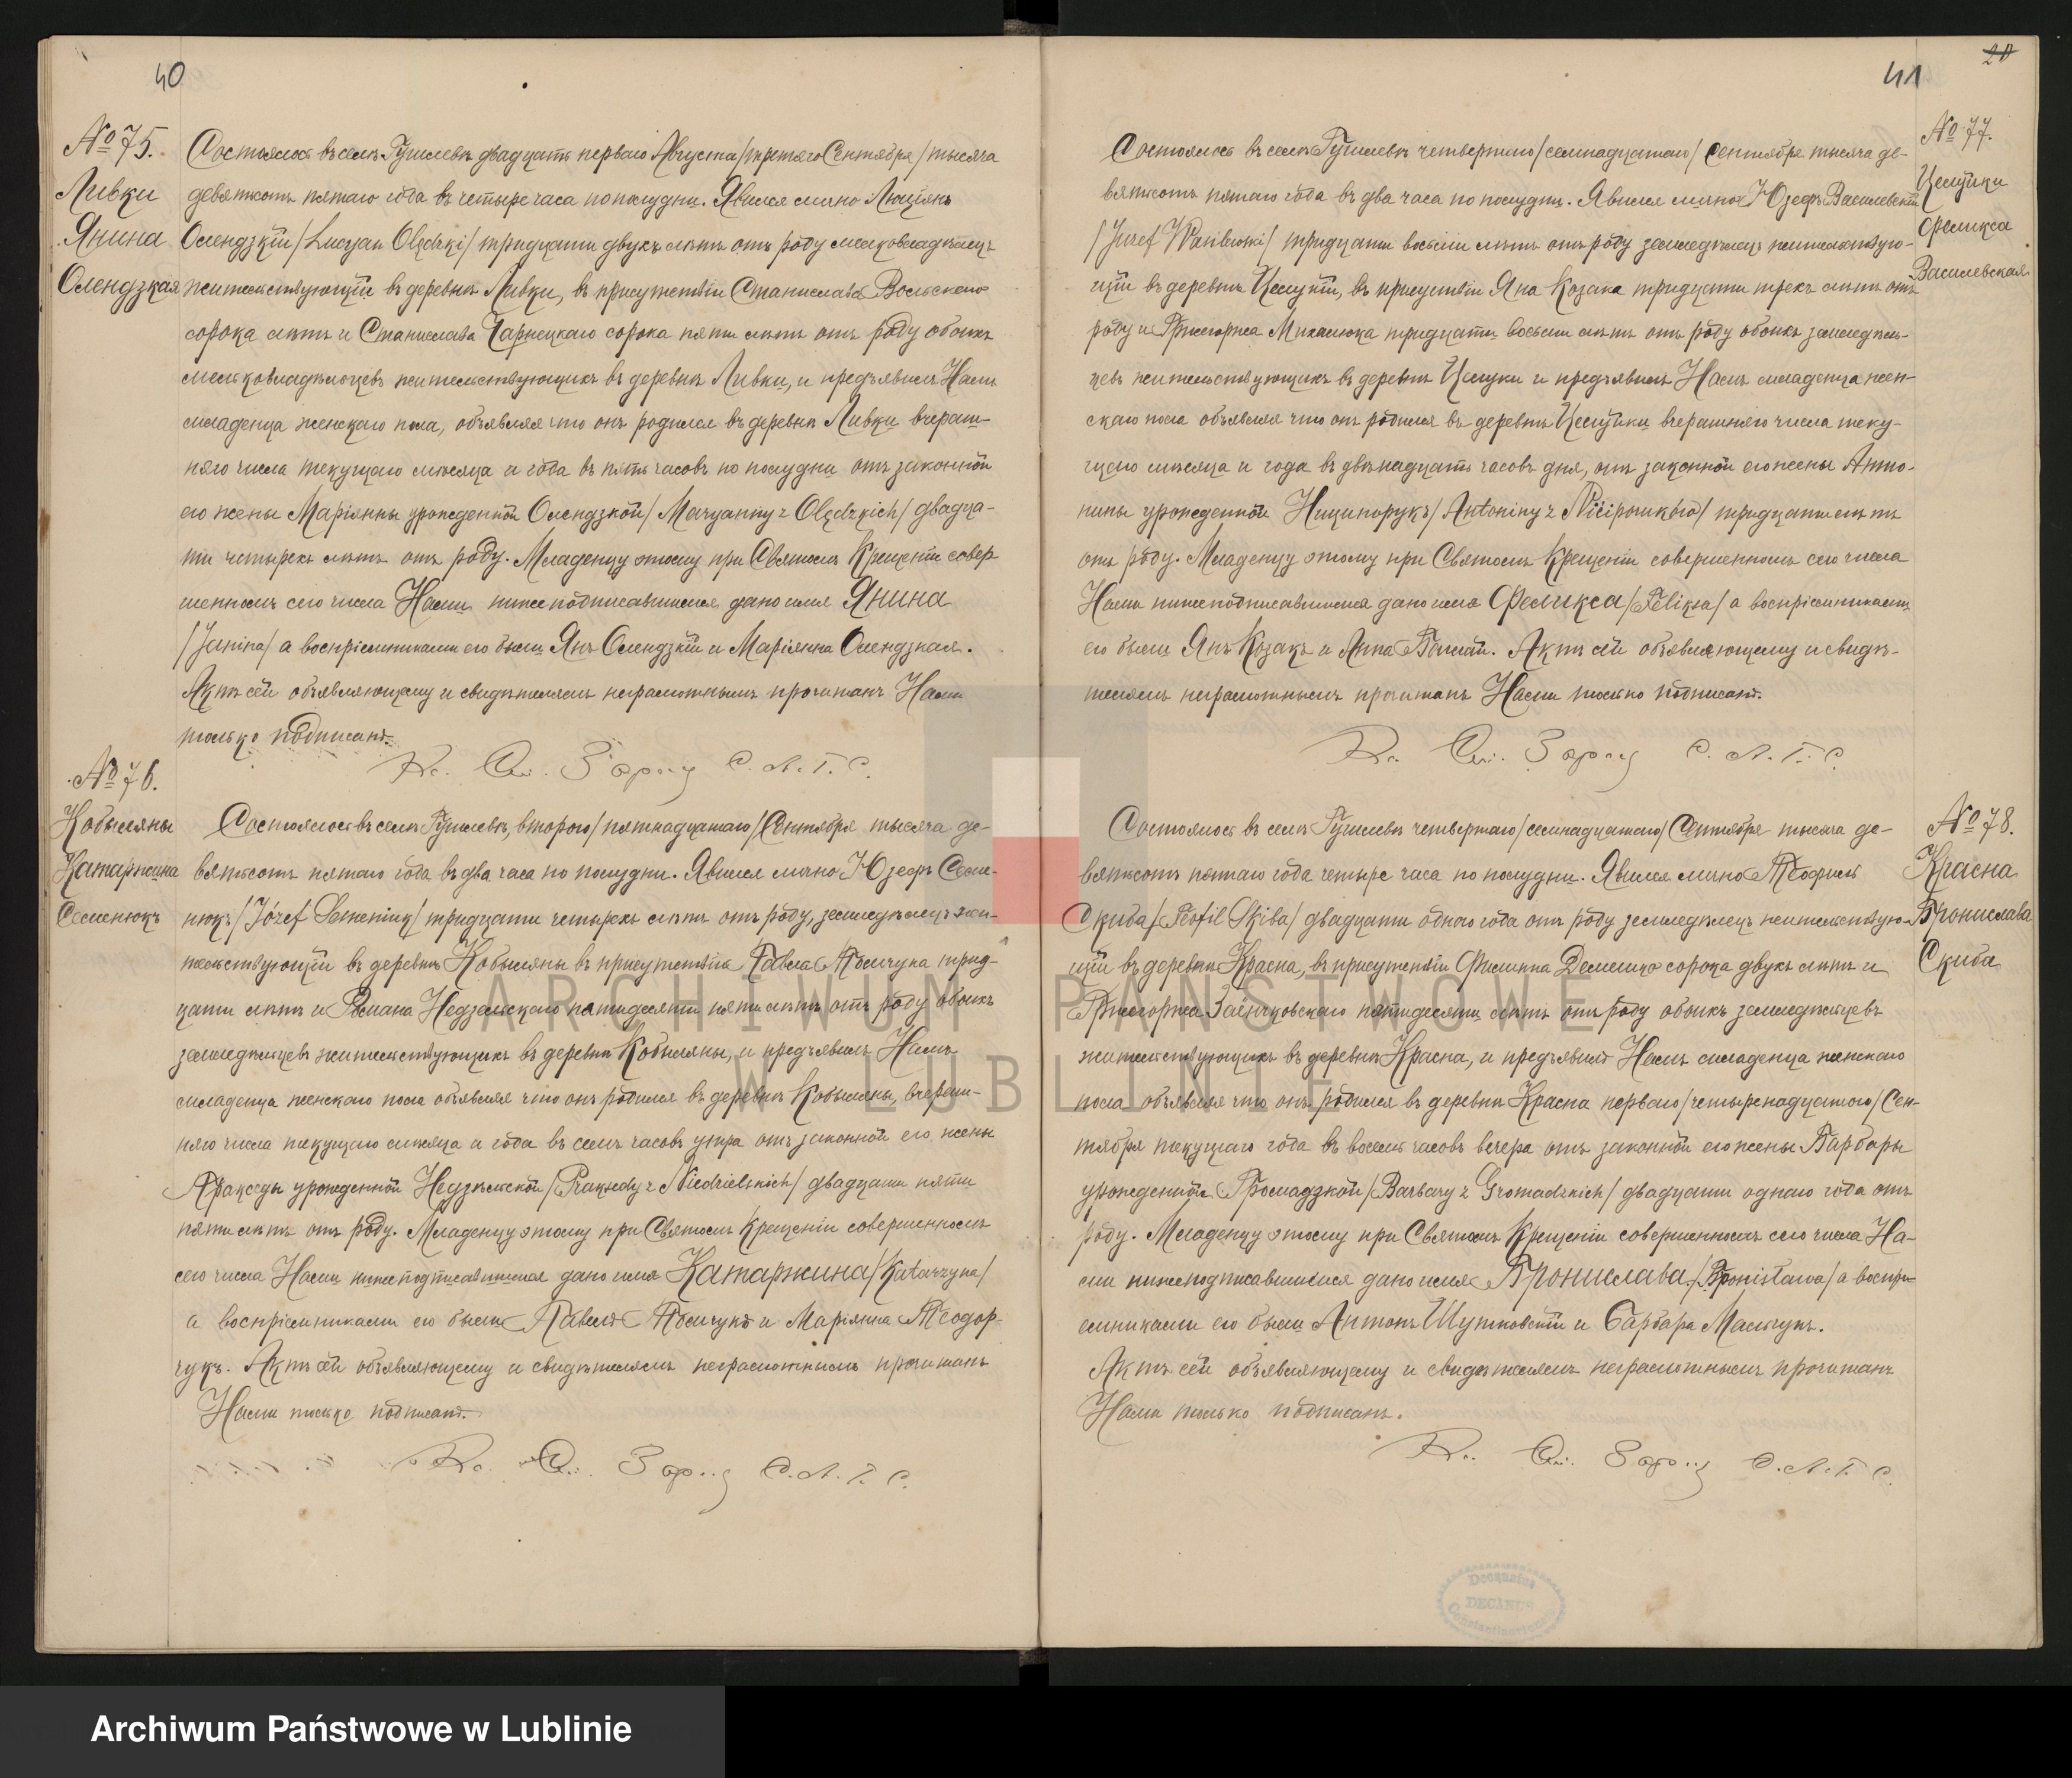 40
№ 75.
Ливки
Янина
Олендзкая
Состоялось въ селѣ Гушлевѣ двадцать перваго Августа /третяго Сентября/ тысяча
девятьсотъ пятаго года въ четыре часа по полудни. Явился лично Люціянъ
Олендзкій /Lucyan Olędzki/ тридцати двухъ лѣтъ отъ роду мелковладѣлецъ
жительствующій въ деревнѣ Ливки, въ присутствіи Станислава Вольского
сорока лѣтъ и Станислава Чарнецкаго сорока пяти лѣтъ отъ роду обоихъ
мелковладѣльцевъ жительствующихъ въ деревнѣ Ливки, и предъявилъ Намъ
младенца женскаго пола, объявляя что онъ родился въ деревнѣ Ливки вчераш-
няго числа текущаго мѣсяца и года въ пять часовъ по полудни отъ законной
его жены Маріянны урожденной Олендзкой /Maryanny z Olędzkich/ двадца-
ти четырехъ лѣтъ отъ роду. Младенцу этому при Святомъ Крещеніи совер
шенномъ сего числа Нами нижеподписавшимся дано имя Янина
/Janina/ а воспріемниками его были Янъ Олендзкій и Маріянна Олендзкая.
Актъ сей объявляющему и свидѣтелямъ неграмотнымъ прочитанъ Нами
только подписанъ.
Кс. Ст. Зарні С.А.Г.С.
№ 76.
Кобыляны
Катаржина
Семенюкъ
Состоялось въ селѣ Гушлевѣ, второго /пятнадцатаго/ Сентября тысяча де-
вятьсотъ пятаго года въ два часа по полудни. Явился лично Юзефъ Семе-
нюкъ /Józef Semeniuk/ тридцати четырехъ лѣтъ отъ роду, земледѣлецъ жи-
тельствующій въ деревнѣ Кобыляны въ присутствіи Павла Томчука трид-
цати лѣтъ и Романа Недзельскаго пятидесяти пяти лѣтъ отъ роду обоихъ
земледѣльцевъ жительствующихъ въ деревнѣ Кобыляны, и предъявилъ Намъ
младенца женскаго пола объявляя что онъ родился въ деревнѣ Кобыляны, вчераш-
няго числа текущаго мѣсяца и года въ семь часовъ утра отъ законной его жены
Праксeды урожденной Недзѣльской /Praksedy z Niedzielskich/ двадцати пяти
пяти лѣтъ отъ роду. Младенцу этому при Святомъ Крещеніи совершенномъ
сего числа Нами нижеподписавшимся дано имя Катаржина /Katarzyna/
а воспріемниками его были Павелъ Томчукъ и Маріянна Теодор-
чукъ. Актъ сей объявляющему и свидѣтелямъ неграмотнымъ прочитанъ
Нами только подписанъ.
Кс. Ст. Зарні С.А.Г.С.
20
41
№ 77.
Целуйки
Феликса
Василевская
Состоялось въ селѣ Гушлевѣ четвертаго /семнадцатаго/ Сентября тысяча де-
вятьсотъ пятаго года въ два часа по полудни. Явился лично Юзефъ Василевскій
/Juzef Wasilewski/ тридцати восьми лѣтъ отъ роду земледѣлецъ жительствую-
щій въ деревнѣ Целуйки, въ присутствіи Яна Козака тридцати трехъ лѣтъ отъ
роду и Гржегоржа Михалюка тридцати восьми лѣтъ отъ роду обоихъ земледѣль-
цевъ жительствующихъ въ деревнѣ Целуйки и предъявилъ Намъ младенца жен-
скаго пола объявляя что онъ родился въ деревнѣ Целуйки вчерашняго числа теку-
щаго мѣсяца и года въ двѣнадцать часовъ дня, отъ законной его жены Анто-
нины урожденной Ничипорукъ /Antoniny z Niciporuków/ тридцати лѣтъ
отъ роду. Младенцу этому при Святомъ Крещеніи совершенномъ сего числа
Нами нижеподписавшимся дано имя Феликса /Feliksa/ а воспріемниками
его были Янъ Козакъ и Анна. Актъ сей объявляющему и свидѣ-
телямъ неграмотнымъ прочитанъ Нами только подписанъ.
Кс. Ст. Зарні С.А.Г.С.
№ 78.
Красна
Бронислава
Скиба
Состоялось въ селѣ Гушлевѣ четвертаго /семнадцатаго/ Сентября тысяча де-
вятьсотъ пятаго года четыре часа по полудни. Явился лично Теофилъ
Скиба /Teofil Skiba/ двадцати одного года отъ роду земледѣлецъ жительствую-
щій въ деревнѣ Красна, въ присутствіи Филиппа Демешко сорока двухъ лѣтъ и
Гржегоржа Заенчковскаго пятидесяти лѣтъ отъ роду обоихъ земледѣльцевъ
жительствующихъ въ деревнѣ Красна, и предъявилъ Намъ младенца женскаго
пола объявляя что онъ родился въ деревнѣ Красна перваго /четырнадцатаго/ Сен-
тября текущаго года въ восемь часовъ вечера отъ законной его жены Барбары
урожденной Громадзкой /Barbary z Gromadzkich/ двадцати одного года отъ
роду. Младенцу этому при Святомъ Крещеніи совершенномъ сего числа На-
ми нижеподписавшимся дано имя Бронислава /Bronisława/ а воспрі-
емниками его были Антонъ Шутковскій и Барбара Мальчукъ.
Актъ сей объявляющему и свидѣтелямъ неграмотнымъ прочитанъ
Нами только подписанъ.
Кс. Ст. Зарні С.А.Г.С.
DECANUS
ARCHIWUM PAŃSTWOWE
W LUBLINIE
Archiwum Państwowe w Lublinie